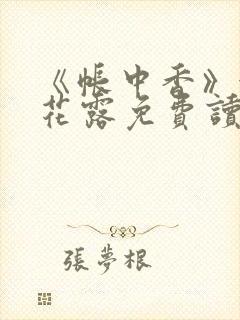 《帳中香》
花露免費讀
張夢根